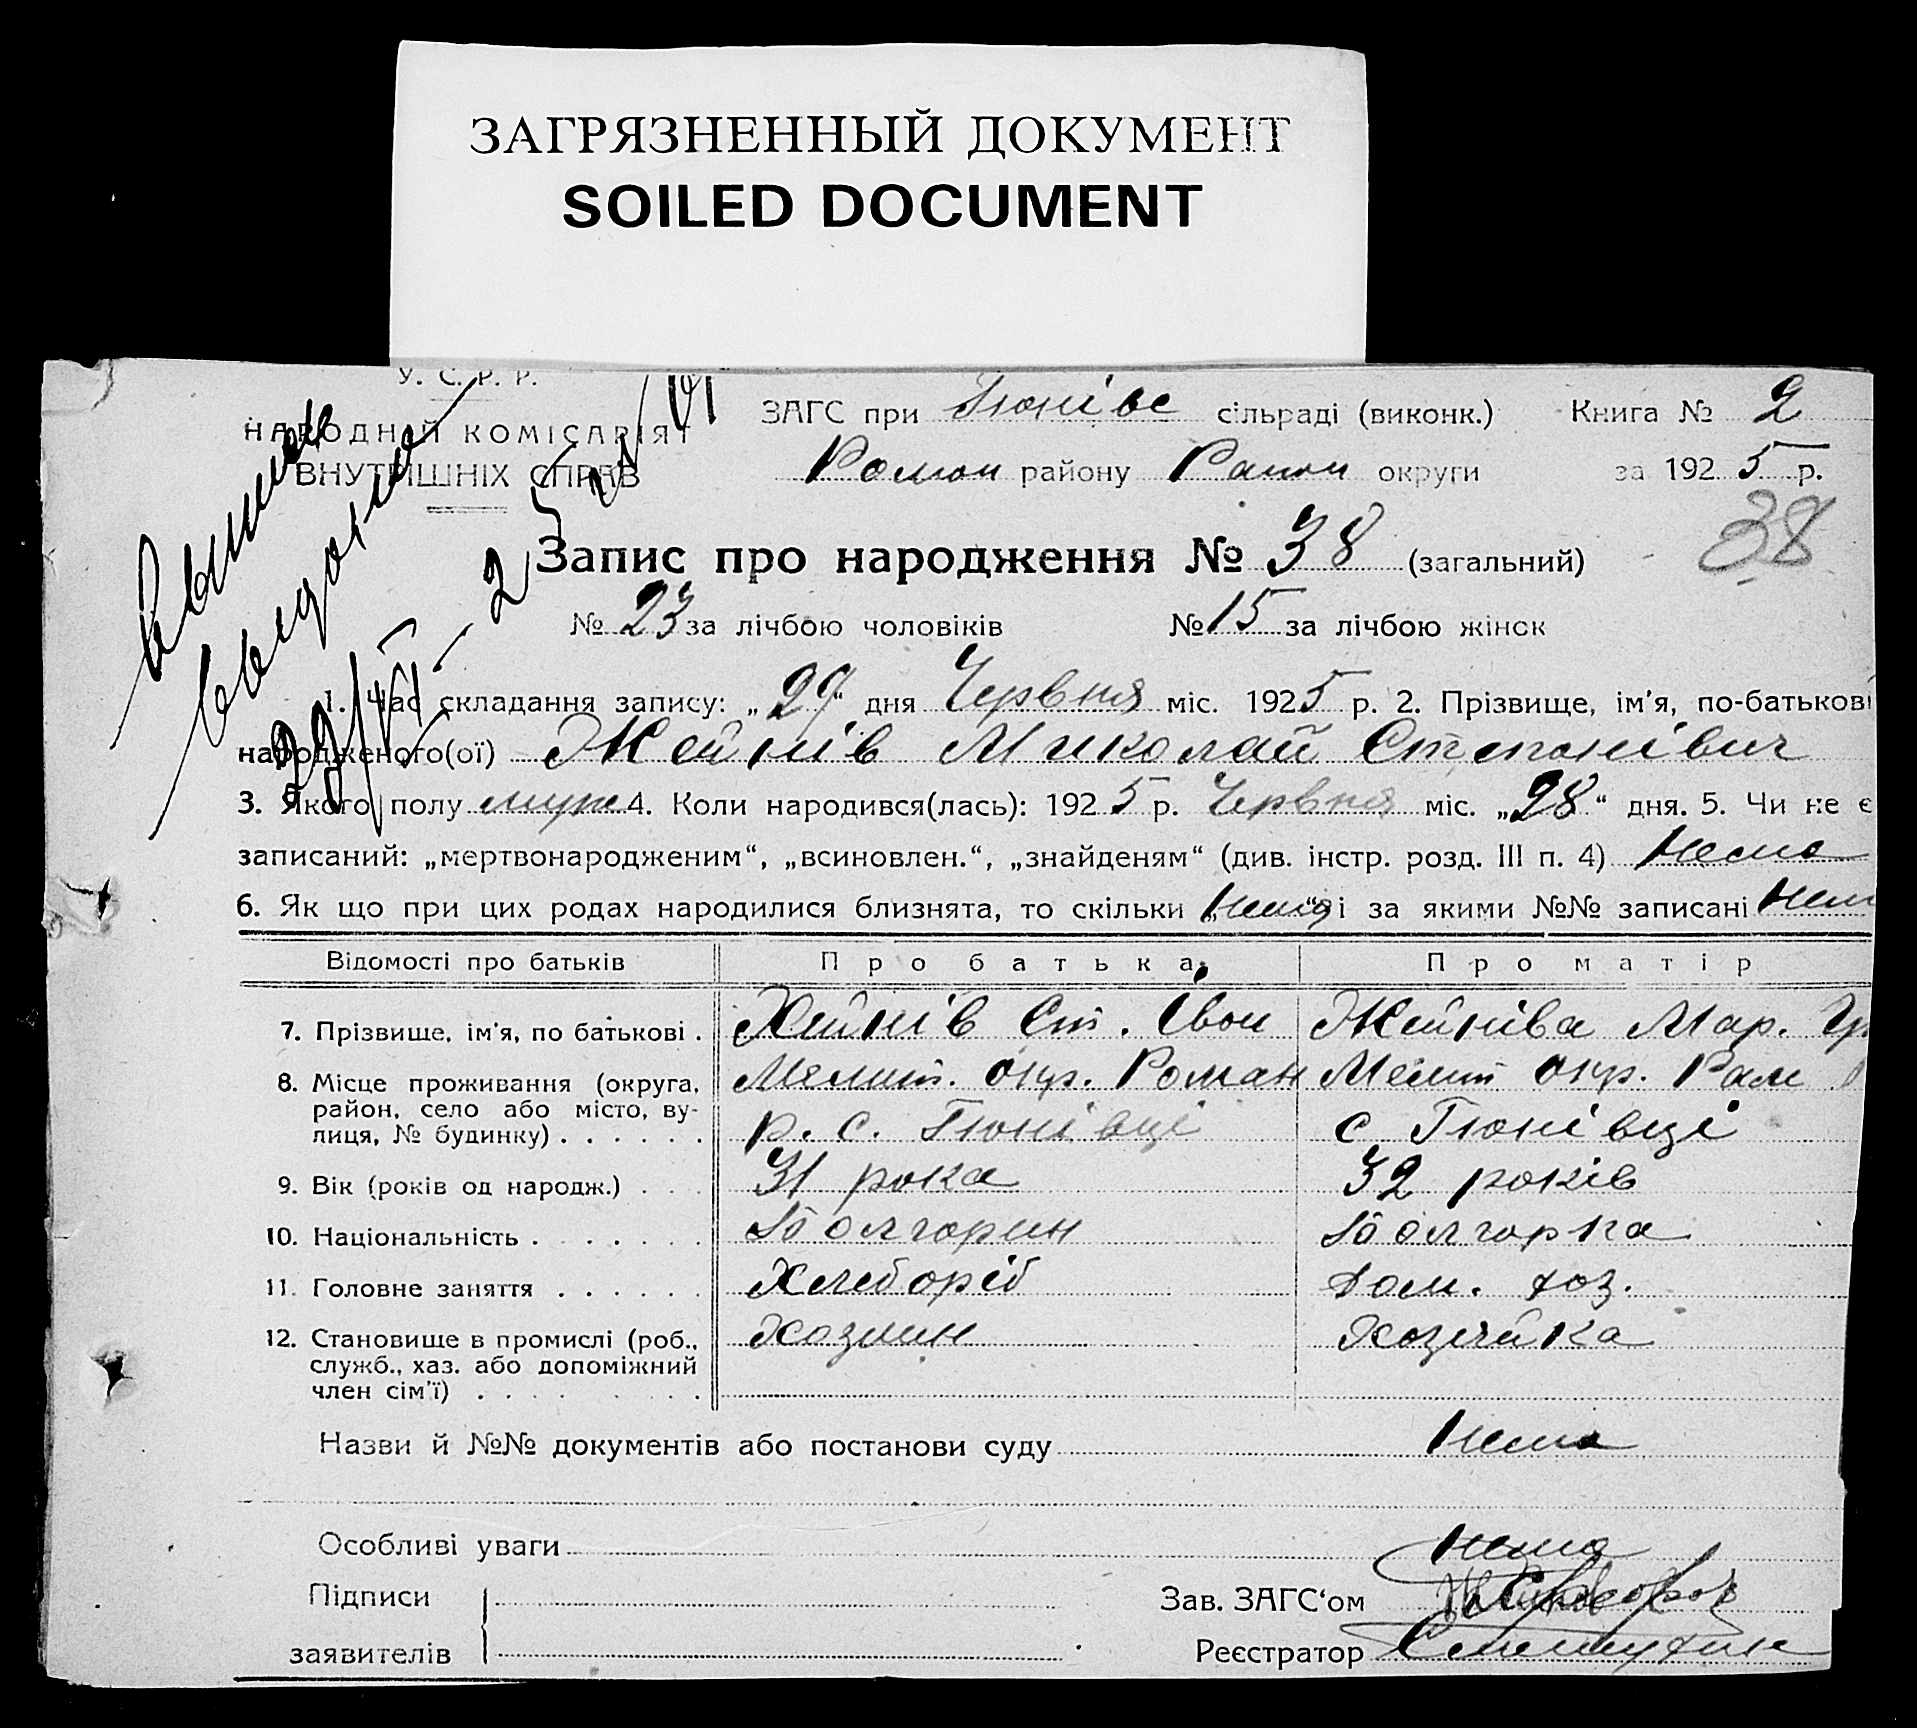 ЗАГРЯЗНЕННЫЙ ДОКУМЕНТ
SOILED DOCUMENT
У. С. Р. Р.
НАРОДНІЙ КОМІСАРІЯТ
ВНУТРІШНІХ СПРАВ
ЗАГС при Гюнівс сільраді (виконк.) Книга № 2
Роман району округи за 1925 р.
38
Запис про народження № 38 (загальний)
№ 23 за лічбою чоловіків № 15 за лічбою жінок
1. Час складання запису: „29“ дня Червня міс. 1925 р. 2. Прізвище, ім'я, по-батькові
народженого(ої) Жейнів Миколай Степанівич
3. Якого полу муж 4. Коли народився(лась): 1925 р. Червня міс. „28“ дня. 5. Чи не є
записаний: „мертвонародженим“, „всиновлен.“, „знайденям“ (див. інстр. розд. III п. 4) Нема
6. Як що при цих родах народилися близнята, то скільки „Нема“ і за якими №№ записані Нема
Відомості про батьків Про батька Про матір
7. Прізвище, ім'я, по батькові . Жейнів Ст. Іван Жейніва Мар. Гр
8. Місце проживання (округа, Мелит. окр. Роман Мелит окр. Ром
район, село або місто, вулиця, № будинку) . . . . . . р. с. Гюнівці с Гюнівці
9. Вік (років од народж.) . . . 31 рока 32 років
10. Національність . . . . . . . Болгорин Болгорка
11. Головне заняття . . . . . . Хлеборіб Дом. хоз.
12. Становище в промислі (роб., Хозяин Хозяйка
служб., хаз. або допоміжний
член сім'ї) . . . . . . . .
Назви й №№ документів або постанови суду Нема
Особливі уваги Нема
Підписи
заявителів
Зав. ЗАГС‘ом
Реєстратор